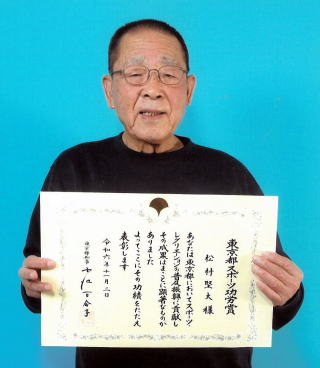 東京都スポーツ功労賞
松村堅太様
あなたは東京都においてスポーツ・
レクリエーションの普及振興に貢献し
その成果はまことに顕著なものが
ありました
よってここにその功績をたたえ
表彰します
令和六年十一月三日
東京都知事 小池百合子